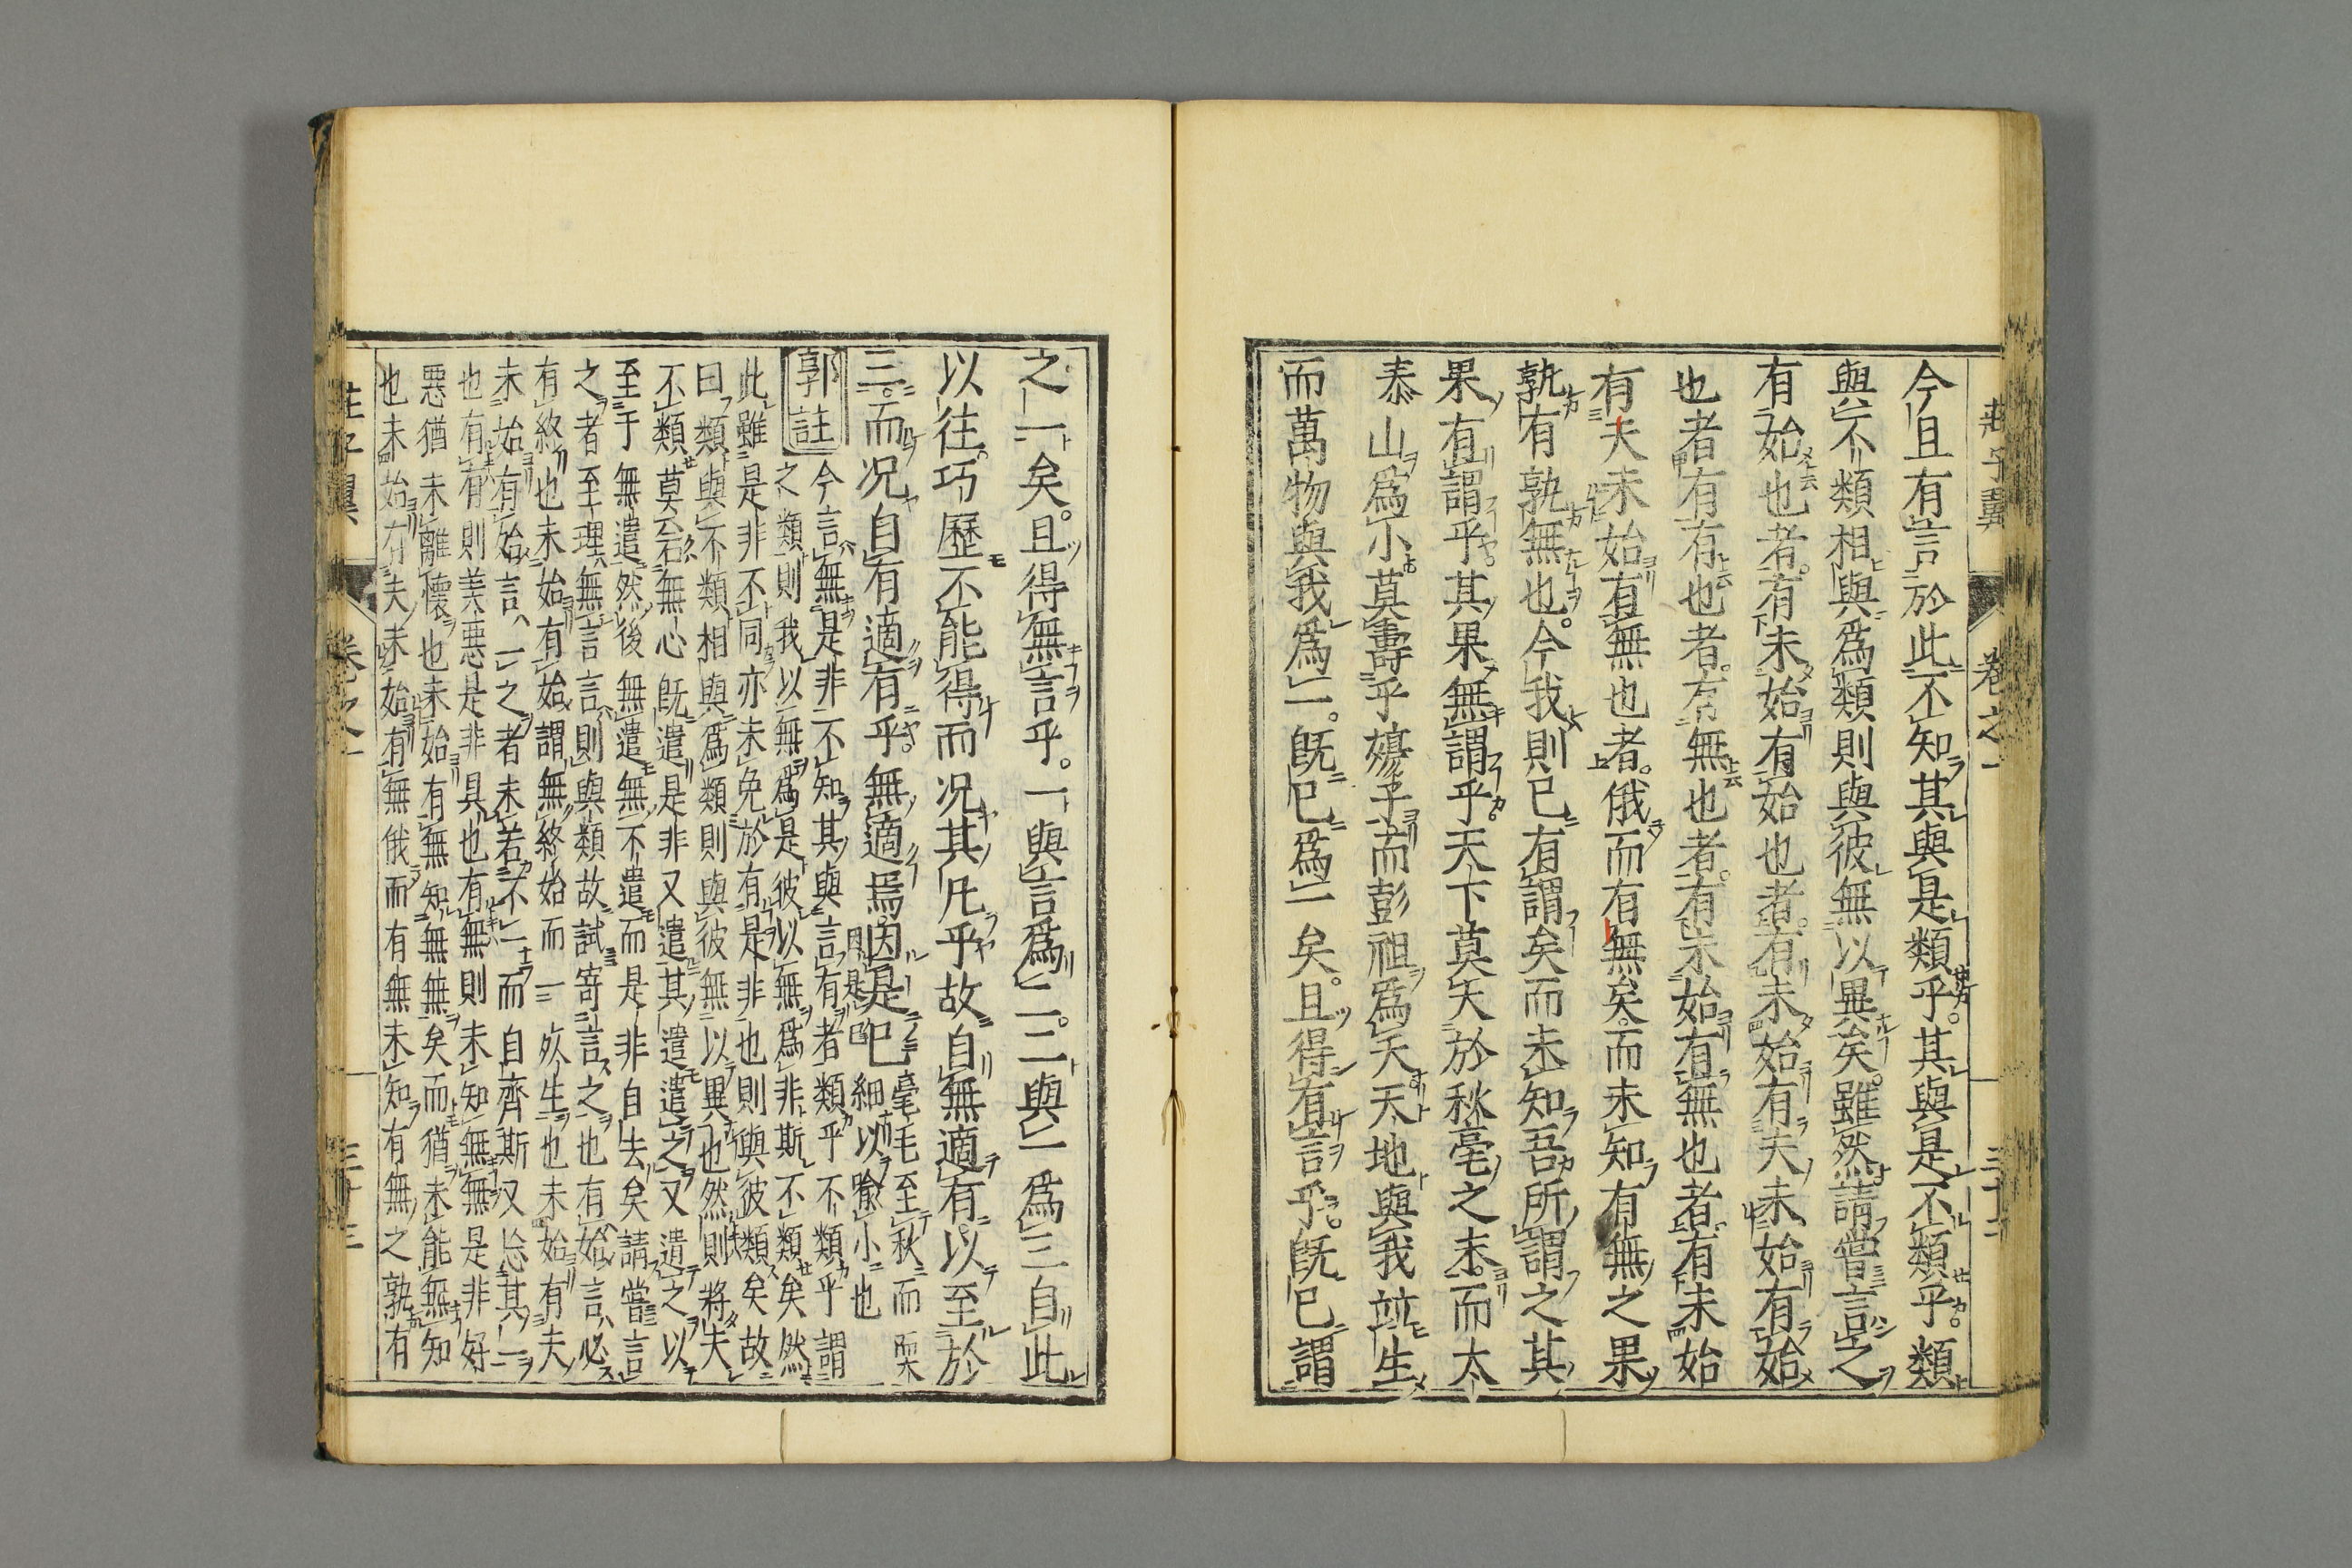 莊子翼 卷之一 三十二
今且有言於此不知其與是類乎。其與是不類乎。類
與不類相與爲類則與彼無以異矣。雖然請嘗言之
有始也者。有未始有始也者。有未始有夫未始有始
也者有有也者。有無也者。有未始有無也者有未始
有夫未始有無也者。俄而有無矣。而未知有無之果
孰有孰無也。今我則已有謂矣而未知吾所謂之其
果有謂乎。其果無謂乎。天下莫大於秋毫之末。而太
泰山爲小莫壽乎殤子而彭祖爲夭天地與我竝生
而萬物與我爲一。既已爲一矣。且得有言乎。既已謂
之一矣。且得無言乎。一與言爲二。二與一爲三自此
以往。巧歷不能得而况其凡乎故自無適有。以至於
三。而况自有適有乎。無適焉。因是已
毫毛至秋而耎
細以喻小也
郭註
今言無是非不知其與言有者類乎不類乎謂
之類則我以無爲是彼以無爲非斯不類矣然
此雖是非不同亦未免於有是非也則與彼類矣故
曰類與不類相與爲類則與彼無以異也然則將夫
不類莫若無心既遣是非又遣其遣遣之又遣之以
至于無遣然後無遣無不遣而是非自去矣請嘗言
之者至理無言言則與類故試寄言之也有始言必
有終也未始有始謂無終始而一死生也未始有夫
未始有始言一之者未若不一而自齊斯又忘其一
也有有則美惡是非具也有無則未知無無是非好
惡猶未離懷也未始有無知無無矣而猶未能無知
也未始有夫未始有無俄而有無未知有無之孰有
莊子翼 卷之一 三十三